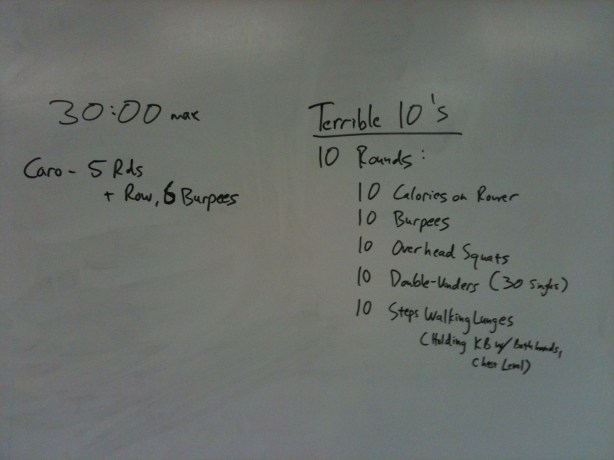 30:00 max
Caro - 5 Rds
+ Row, 6 Burpees
Terrible 10's
10 Rounds:
10 Calories on Rower
10 Burpees
10 Overhead Squats
10 Double-Unders (30 Singles)
10 Steps Walking Lunges
(Holding KB w/ Both hands,
Chest Level)